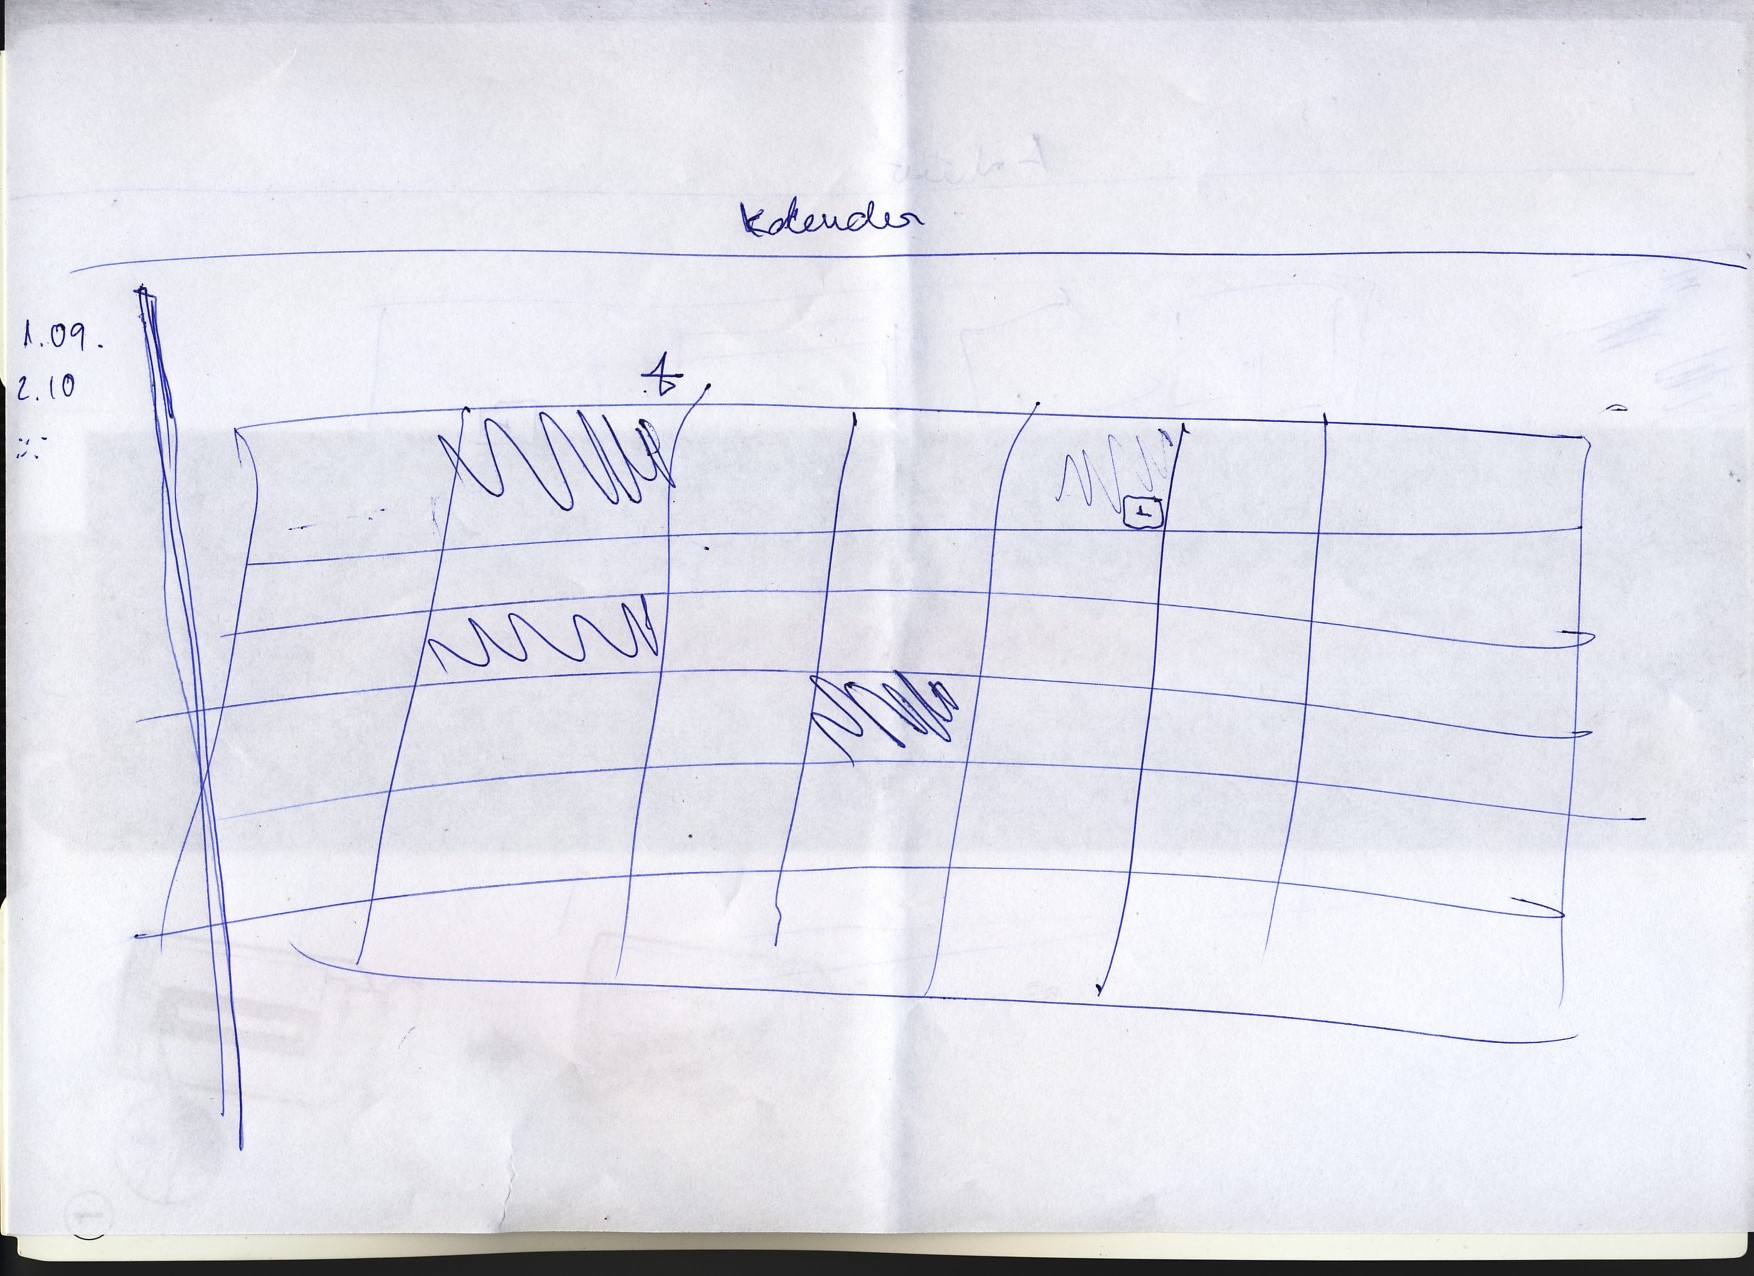 Kalender
1.09.
2.10